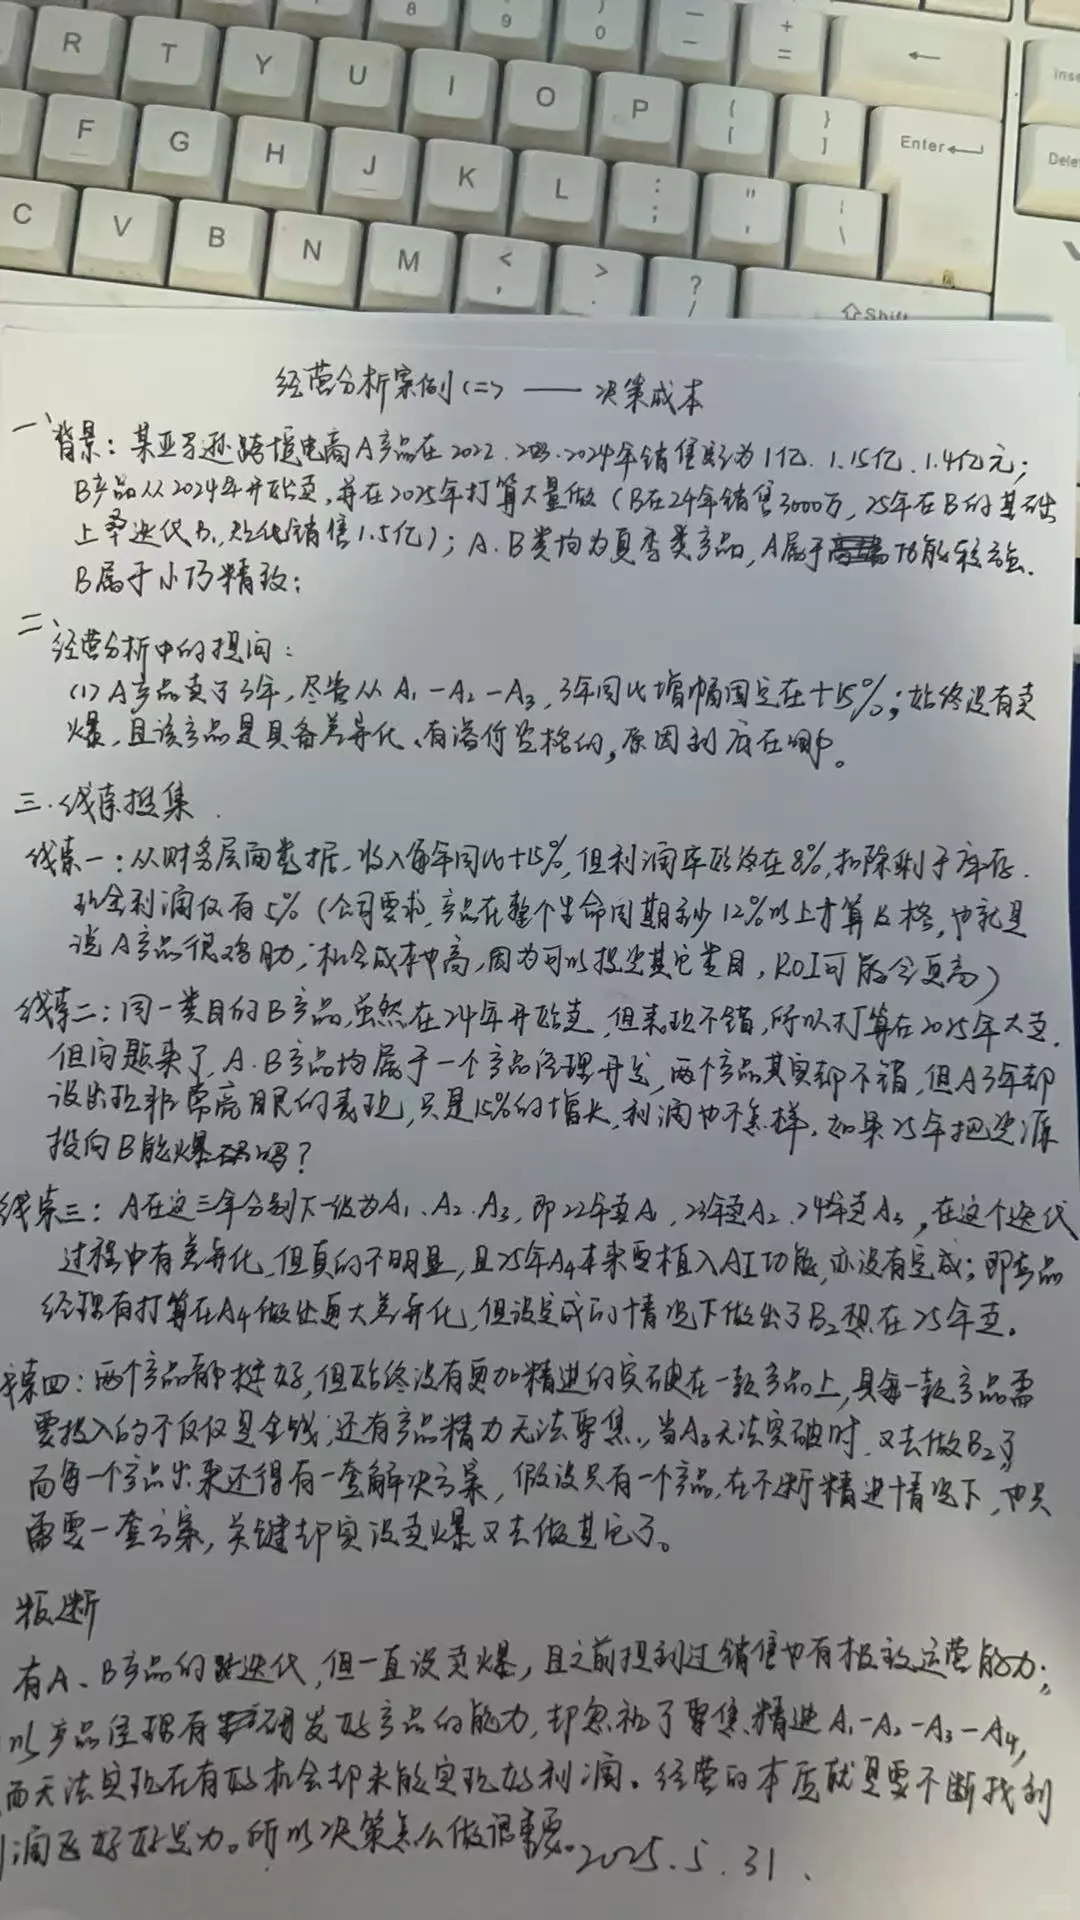 8 9 ) 0 — - + = ←
R T Y U I O P { [ } ] Enter Inse
F G H J K L : ; " ' | \ Dele
C V B N M < , > . ? / Shift
经营分析案例(二) —— 决策成本
一、背景：某亚马逊跨境电商A产品在2022、2023、2024年销售额为1亿、1.15亿、1.4亿元；
B产品从2024年开始卖，并在2025年打算大量做（B在24年销售3000万，25年在B的基础
上迭代B，销售1.5亿）；A、B类均为夏季类产品，A属于功能较强
B属于小巧精致；
二、经营分析中的提问：
(1) A产品卖了3年，尽管从A₁-A₂-A₃，3年同比增幅固定在+15%；始终没有卖
爆，且该产品是具备差异化、有溢价资格的，原因到底在哪。
三、线索搜集
线索一：从财务层面数据，收入每年同比+15%，但利润率始终在8%，扣除剩于库存，
现金利润仅有5%（公司要求，产品在整个生命周期至少12%以上才算及格，也就是
说A产品很鸡肋；机会成本也高，因为可以投资其它类目，ROI可能会更高）
线索二：同一类目的B产品，虽然在24年开始卖，但表现不错，所以打算在2025年大卖，
但问题来了，A、B产品均属于一个产品经理开发，两个产品其实都不错，但A3年都
没出现非常亮眼的表现，只是15%的增长，利润也不怎样，如果25年把资源
投向B能爆吗？
线索三：A在这三年分别下一级为A₁、A₂、A₃，即22年卖A₁，23年卖A₂、24年卖A₃，在这个迭代
过程中有差异化，但真的不明显，且25年A₄本来要植入AI功能，亦没有完成；即产品
经理有打算在A₄做出更大差异化，但没完成的情况下做出了B₂想在25年卖。
线索四：两个产品都挺好，但始终没有更加精进的突破在一款产品上，且每一款产品需
要投入的不仅仅是金钱，还有产品精力无法聚焦，当A₃无法突破时，又去做B₂了
而每一个产品出来还得有一套解决方案，假设只有一个产品，在不断精进情况下，也只
需要一套方案，关键却实没卖爆又去做其它了。
判断
有A、B产品的迭代，但一直没卖爆，且之前提到过销售也有极致运营能力；
以产品经理有研发好产品的能力，却忽视了聚焦精进A₁-A₂-A₃-A₄，
而无法实现在有好机会却未能实现好利润。经营的本质就是要不断找利
润。所以决策怎么做很重要。2025.5.31.